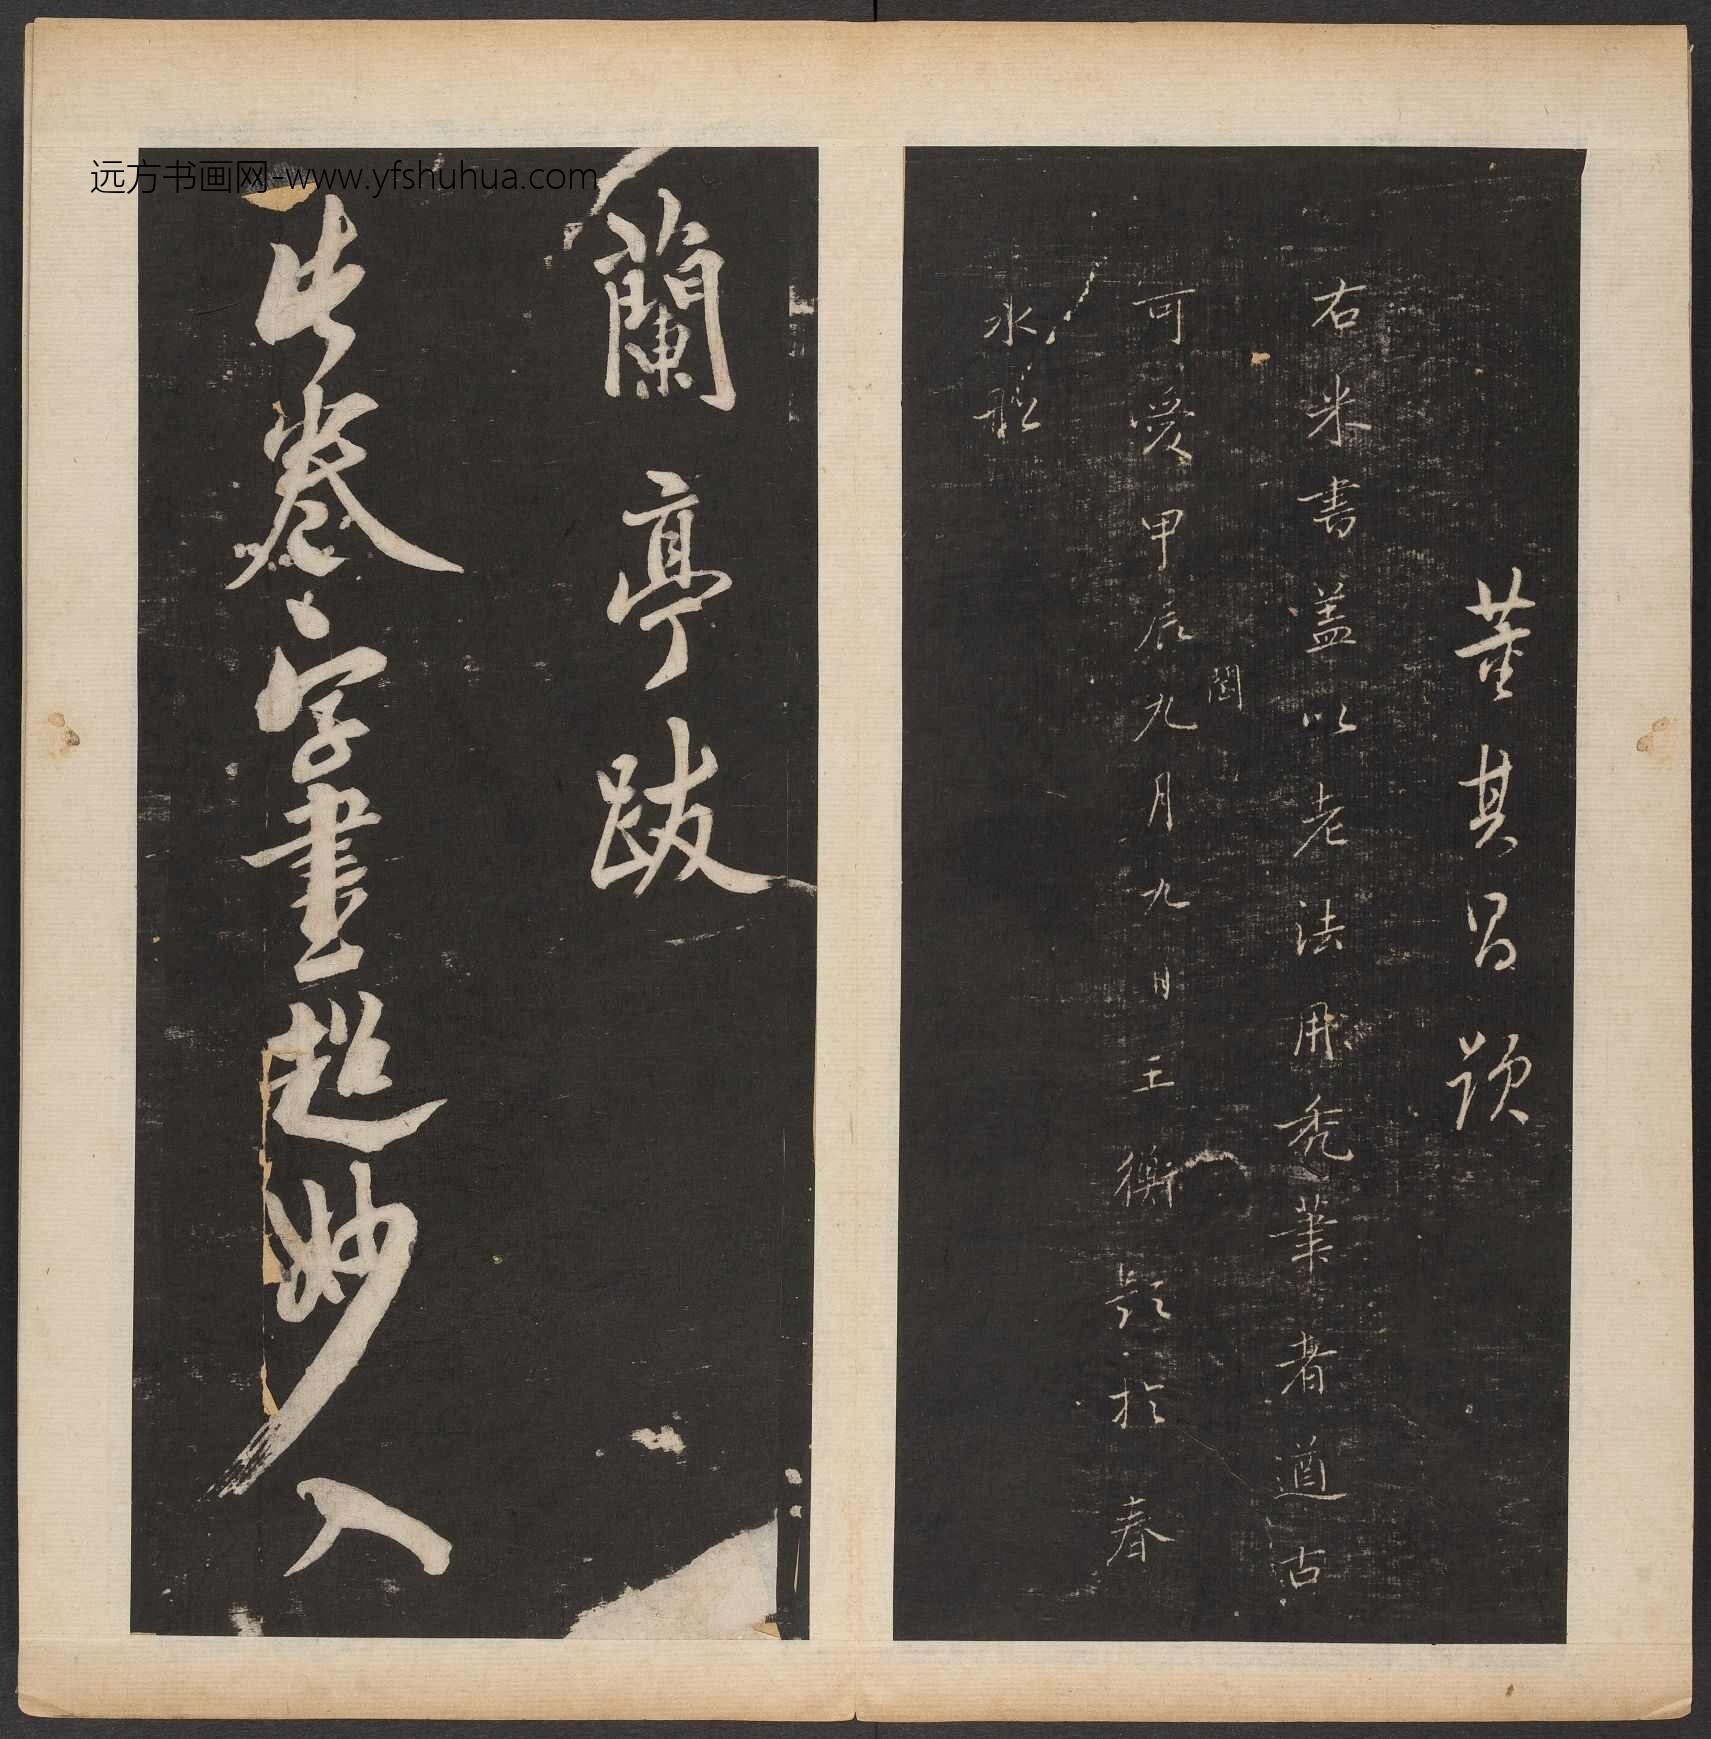 远方书画网-www.yfshuhua.com
董其昌題
右米書蓋以老法用禿筆者遒古
可愛甲辰九月九日王衡題於春
閏
水船
蘭亭跋
此卷字畫超妙入